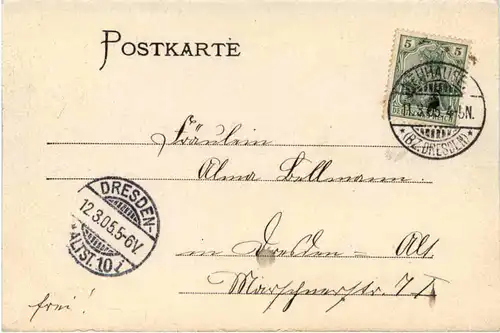 POSTKARTE
5 5
NEUHAUSEN
11.3.05. 4-5N.
*(BZ. DRESDEN)*
Fräulein
Alma Bellmann.
DRESDEN-
12.3.05.5-6V.
*ALTST.10z
in Dresden - Alt.
Marschnerstr. 7 I
frei!